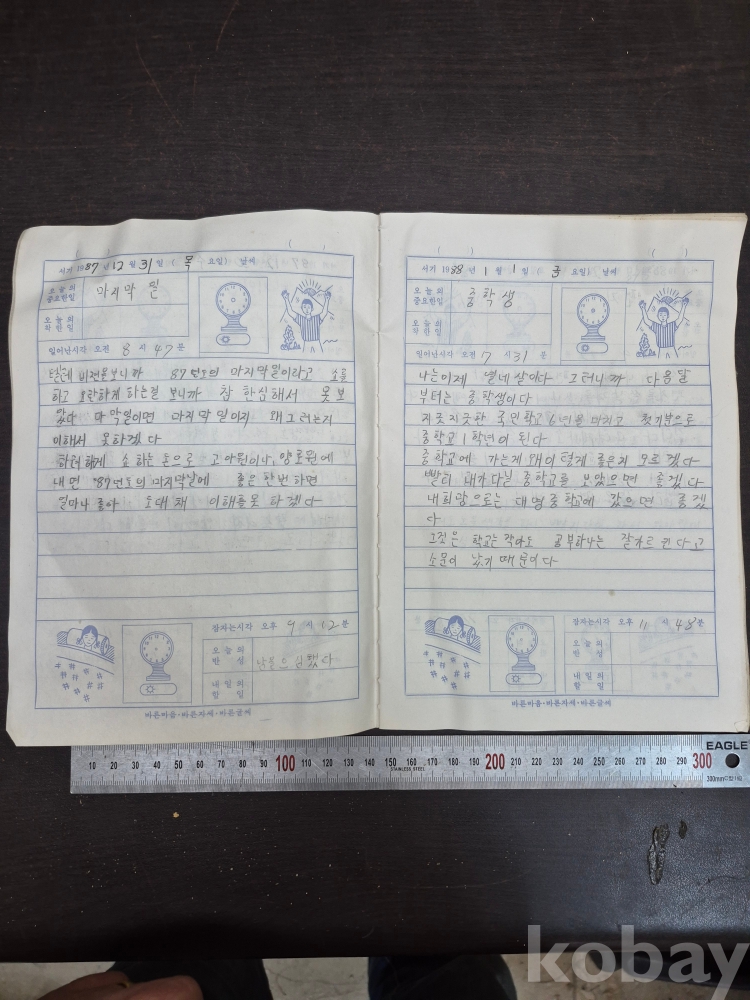 서기 1987년 12월 31일 (목 요일) 날씨
오늘의 중요한일
마지막 일
오늘의 착한일
일어난시각 오전 8시 47분
텔레비전을보니까 87년도의 마지막일이라고 소름
하고 요란하게 하는걸 보니까 참 한심해서 못보
았다 마막일이면 마지막 일이지 왜 그러는지
이해서 못하겠다
하려하게 쇼하는 돈으로 고아원이나, 양로원에
내면 '87년도의 마지막날에 좋은 한번 하면
얼마나 좋아 도대채 이해를못 하겠다
잠자는시각 오후 9시 12분
오늘의 반성
남을 했다
내일의 할일
바른마음·바른자세·바른글씨
서기 1988년 1월 1일 (금 요일) 날씨
오늘의 중요한일
중학생
오늘의 착한일
일어난시각 오전 7시 31분
나는이제 열네살이다 그러니까 다음달
부터는 중학생이다
지긋지긋한 국민학교 6년을 마치고 첫기분으로
중학교 1학년이 된다
중학교에 가는게 왜이렇게 좋은지 모르겠다
빨리 내가다닐 중학교를 보았으면 좋겠다
내희망으로는 대명중학교에 갔으면 좋겠
다
그것은 학교는 작아도 공부하나는 잘가르킨다고
소문이 났기 때문이다
잠자는시각 오후 11시 48분
오늘의 반성
내일의 할일
바른마음·바른자세·바른글씨
10 20 30 40 50 60 70 80 90 100 110 120 130 140 150 160 170 180 190 200 210 220 230 240 250 260 270 280 290 300
STAINLESS STEEL
EAGLE
kobay